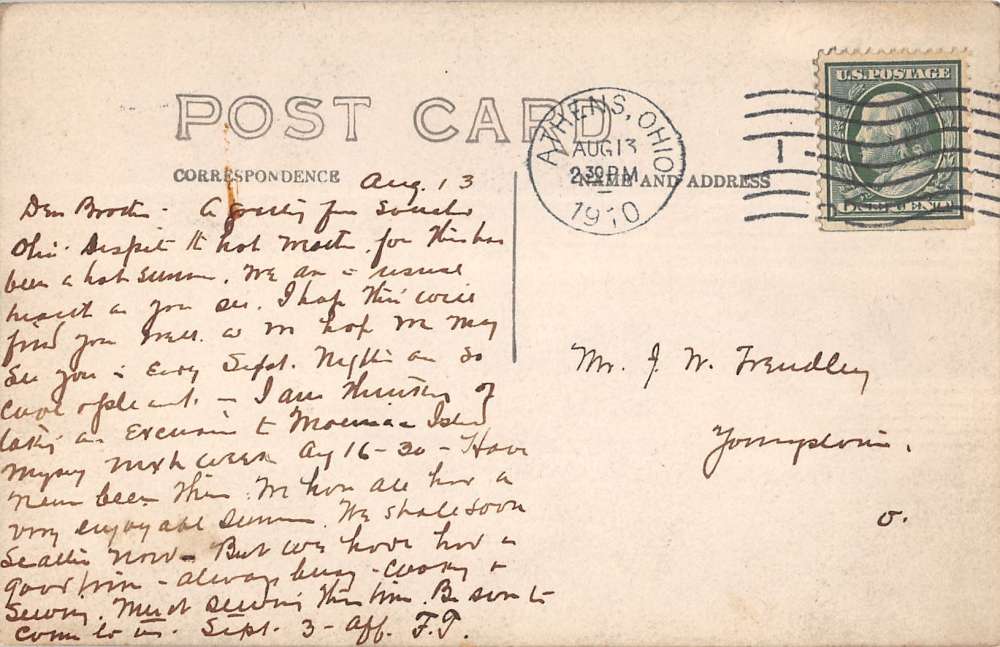 POST CARD
CORRESPONDENCE
NAME AND ADDRESS
U.S. POSTAGE
ATHENS, OHIO
AUG 13
2 30 PM
1910
1
Aug. 13
Dear Brother - A greeting from Souther
Ohio. Despite the hot weather, for this has
been a hot summer. We are as usual
as you see. I hope this will
find you well. as we hope we may
See you in early Sept. Nights are so
cool & pleasant. - I am thinking of
taking an Excursion to Mackinac Island
Myself next week Aug 16-30 - Have
never been there. We have all had a
very enjoyable summer. We shall soon
Scatter now - But we have had a
good time - always busy - cooking &
Sewing. Much sewing this time. Be sure to
come to us. Sept. 3 - Aff. F.T.
Mr. J. W. Frendley
Youngstown.
O.